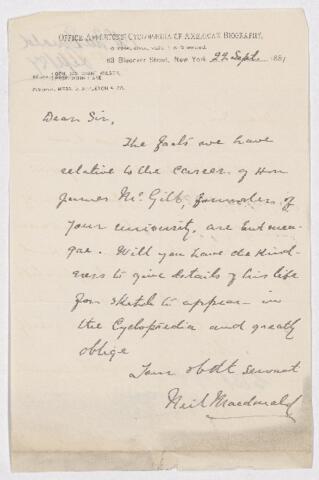 Office Appletons' Cyclopædia of American Biography,
63 Bleecker Street, New York 22 Sept. 1887
Dear Sir,
The facts we have
relative to the career of Hon
James McGill, founder of
your university, are but mea-
gre. Will you have the kind-
ness to give details of his life
for sketch to appear in
the Cyclopaedia and greatly
oblige
Your obdt servant
Neil Macdonald